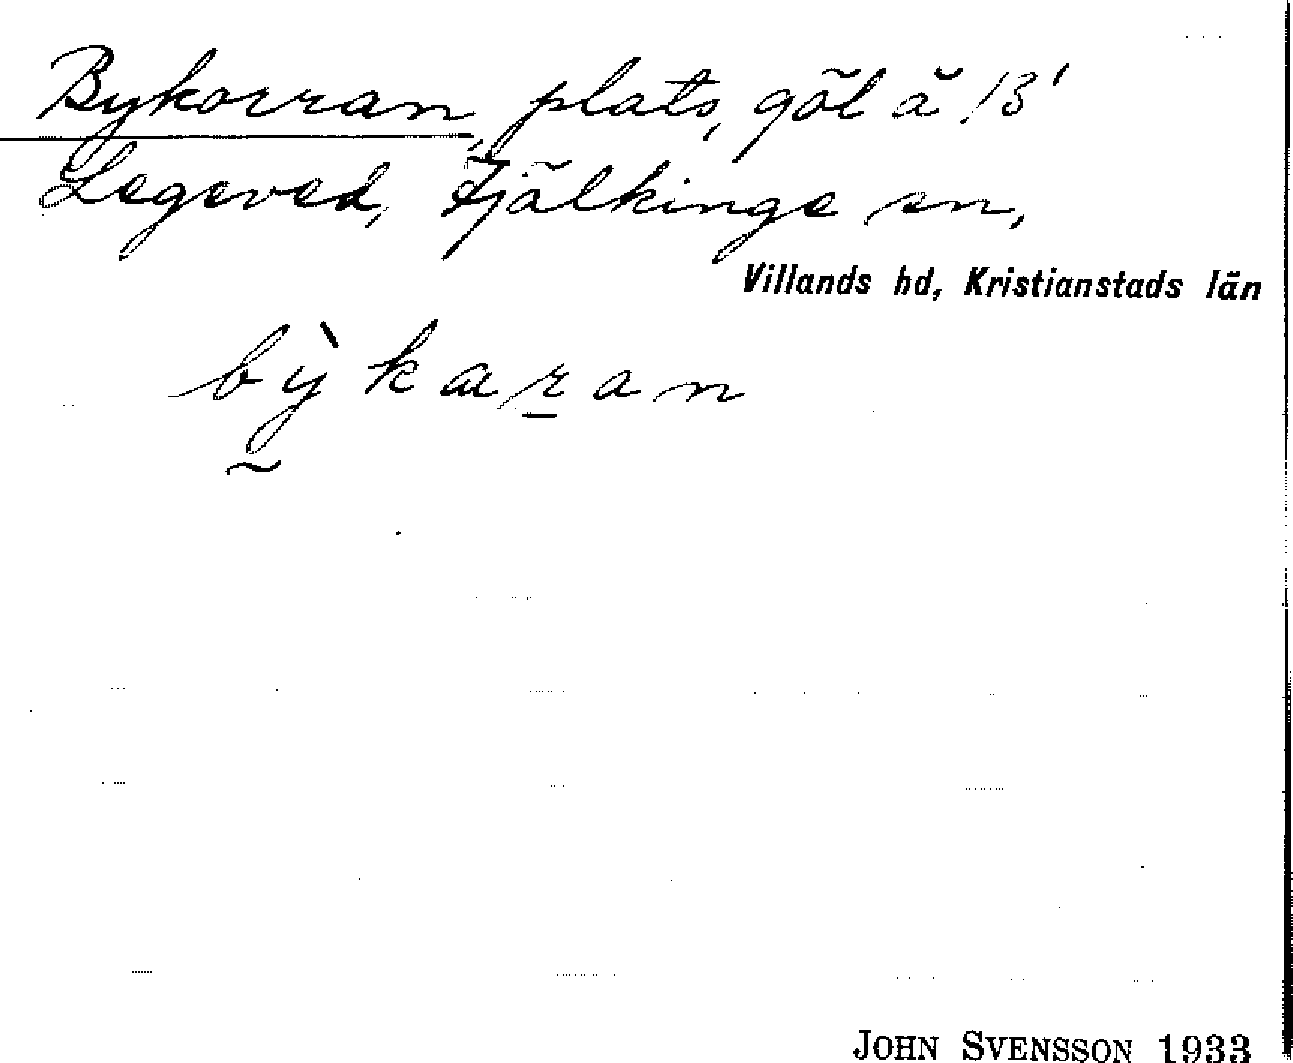 Bykorran, plats, göl å 13'
Legeved, Fjälkinge sn,
Villands hd, Kristianstads län
bỳkaran
JOHN SVENSSON 1933